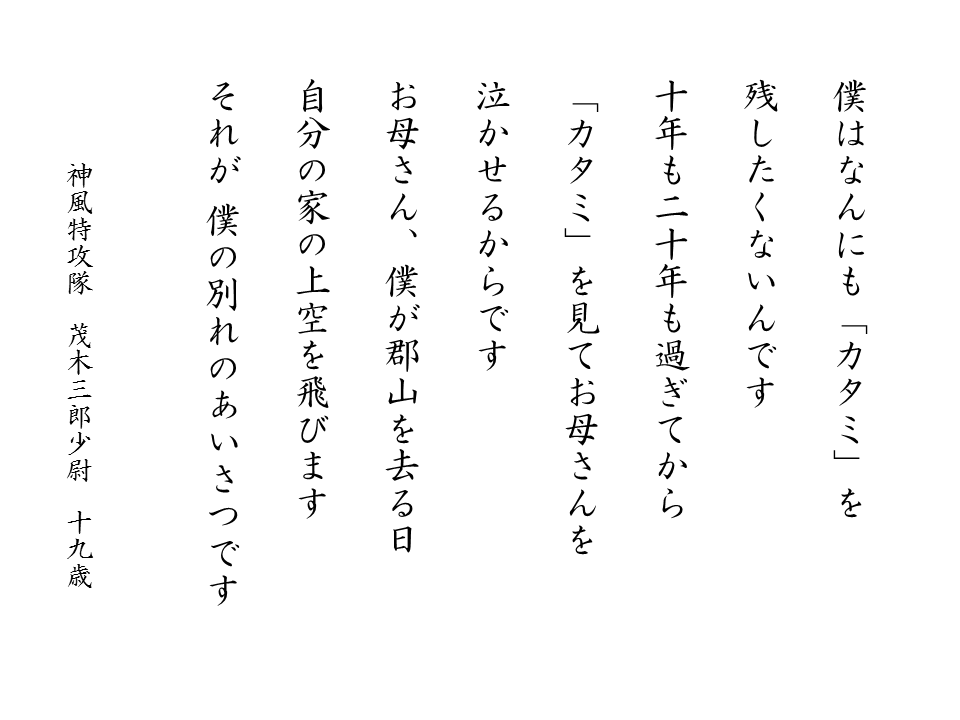 僕はなんにも「カタミ」を
残したくないんです
十年も二十年も過ぎてから
「カタミ」を見てお母さんを
泣かせるからです
お母さん、僕が郡山を去る日
自分の家の上空を飛びます
それが 僕の別れのあいさつです
神風特攻隊　茂木三郎少尉　十九歳